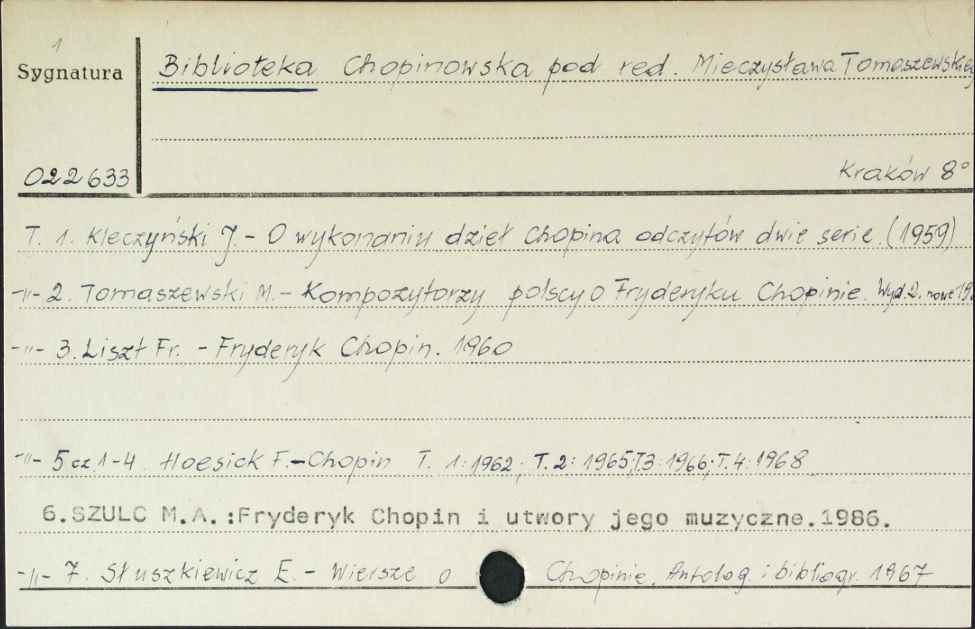 1
Sygnatura
Biblioteka Chopinowska pod red. Mieczysława Tomaszewskieg
022633
Kraków 8°
T. 1. Kleczyński J. - O wykonaniu dzieł Chopina odczytów dwie serie. (1959)
-"- 2. Tomaszewski M. - Kompozytorzy polscy o Fryderyku Chopinie. Wyd. 2. nowe
-"- 3. Liszt Fr. - Fryderyk Chopin. 1960
-"- 5 cz. 1-4. Hoesick F. - Chopin T. 1: 1962; T. 2: 1965; T3: 1966; T. 4: 1968
6.SZULC M.A.:Fryderyk Chopin i utwory jego muzyczne.1986.
-"- 7. Słuszkiewicz E. - Wiersze o Chopinie. Antolog. i bibliogr. 1967